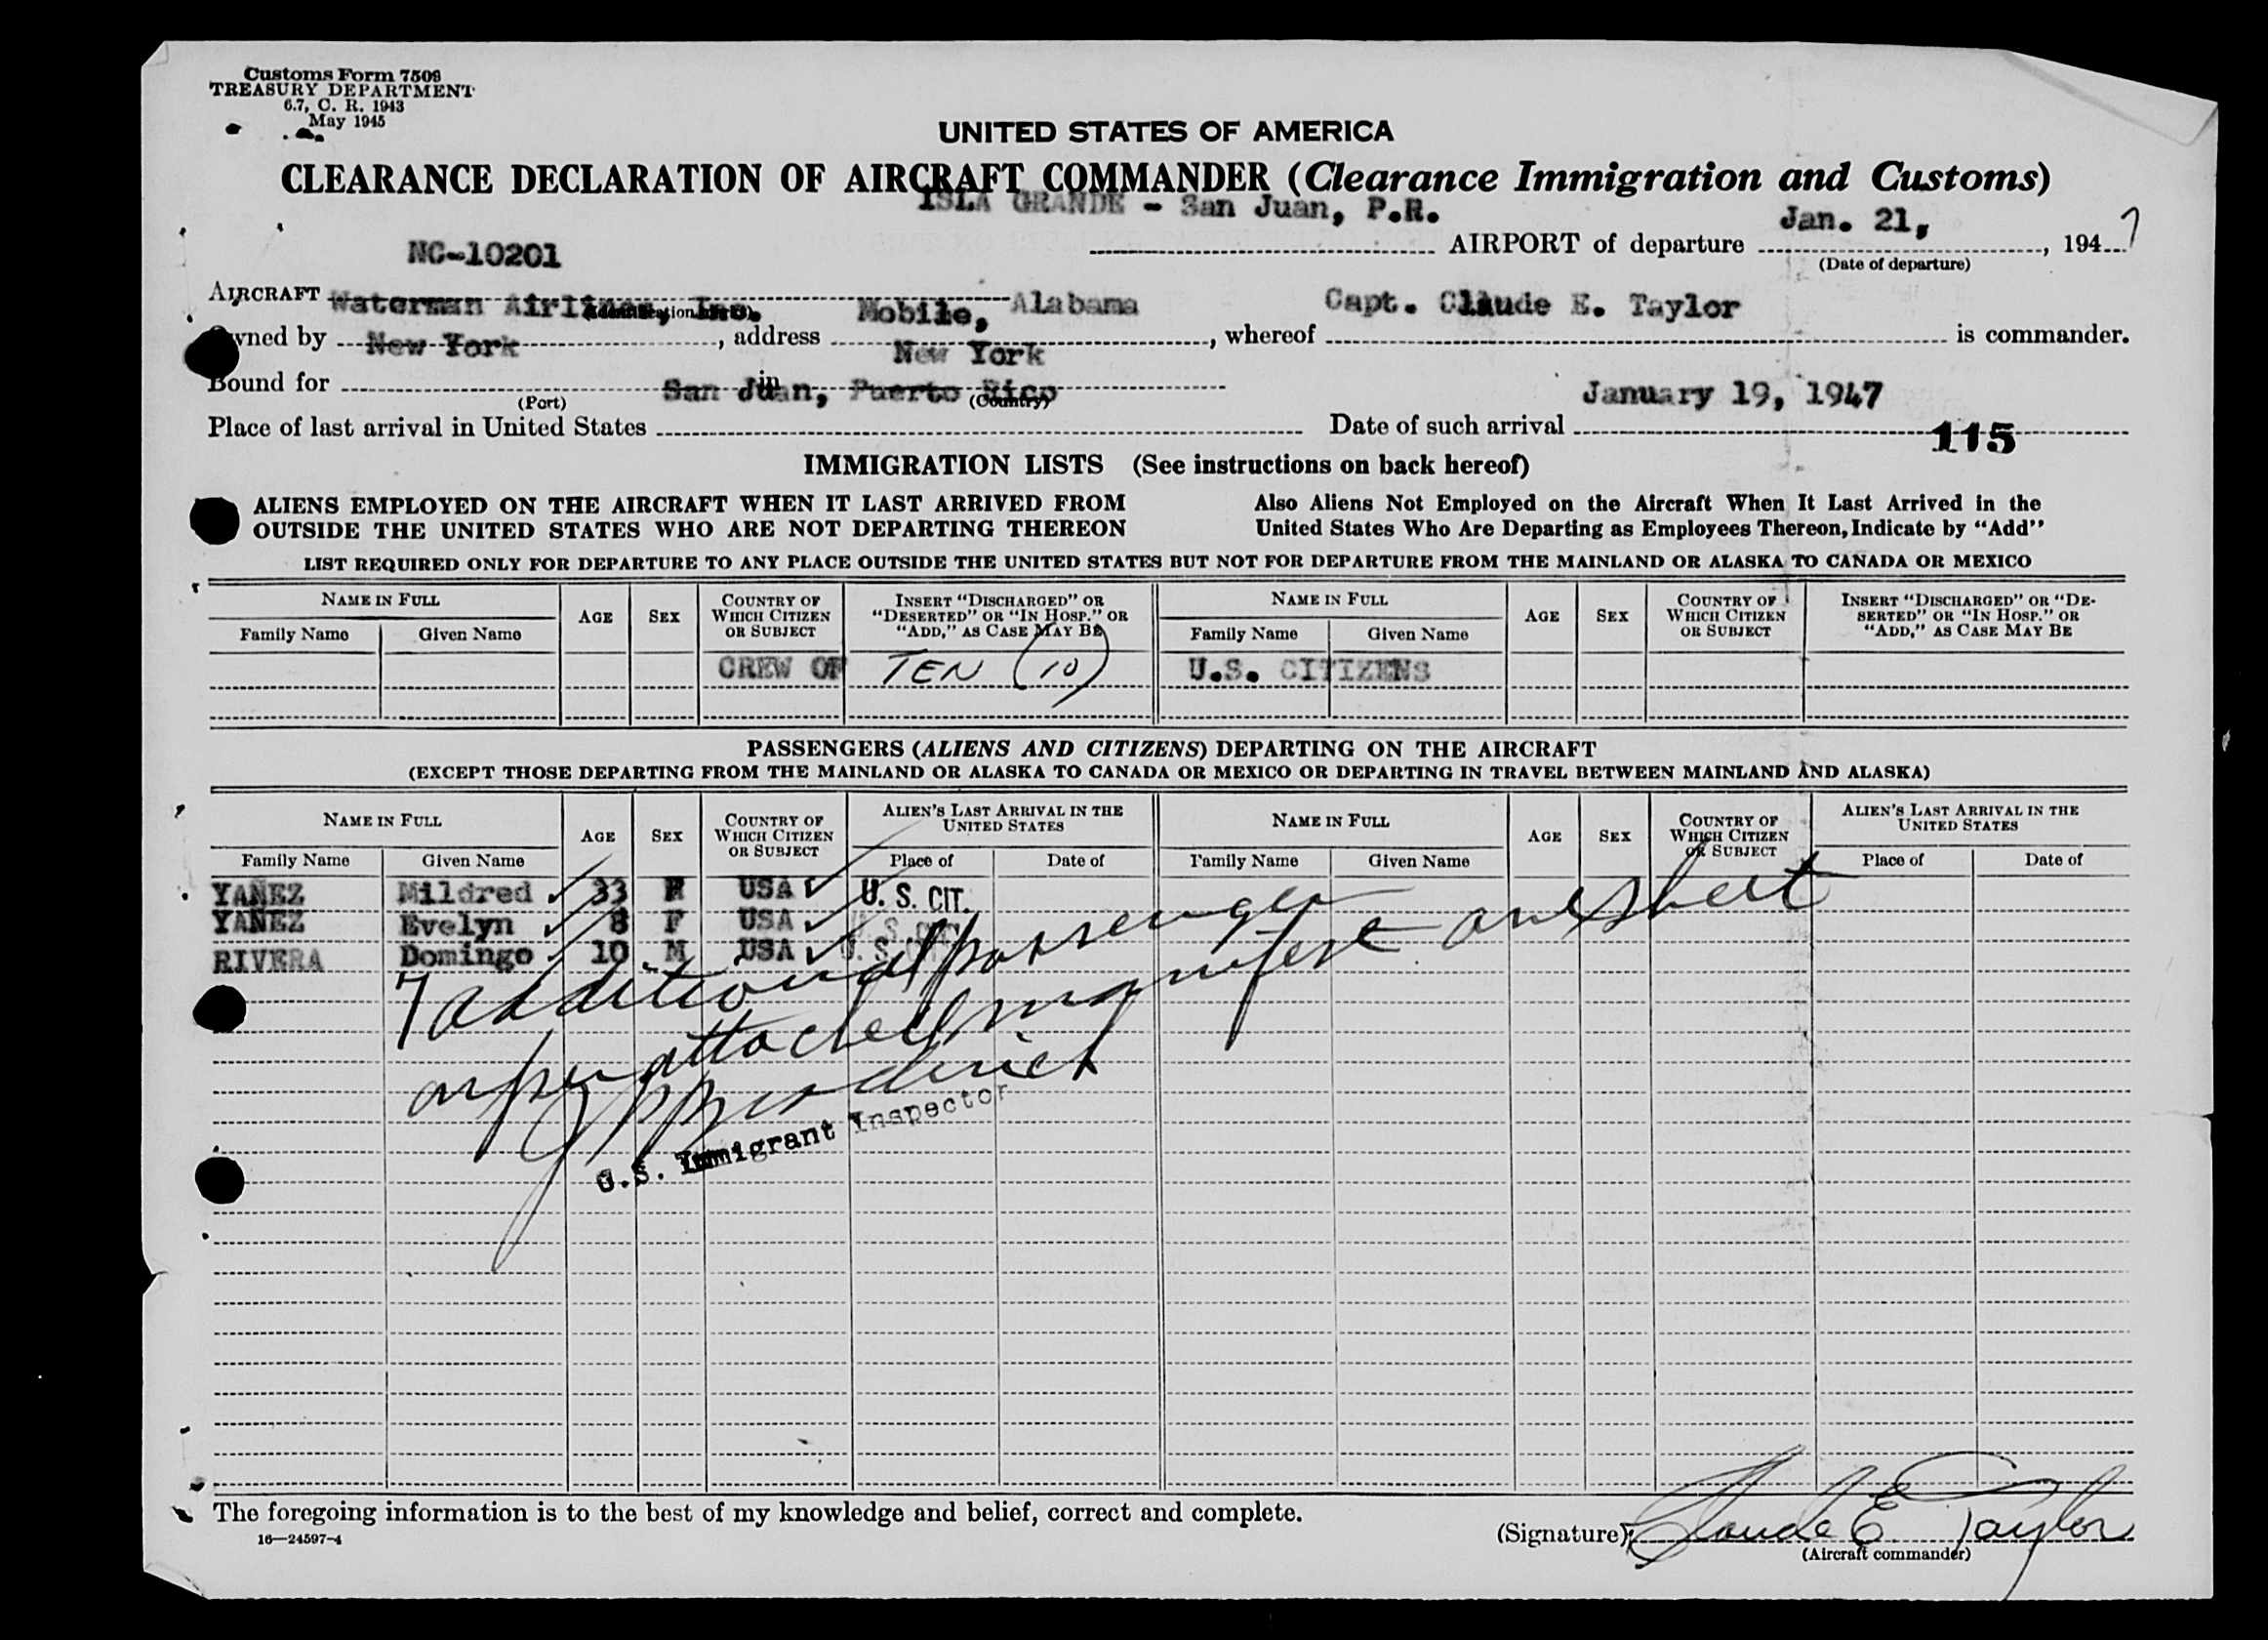 Customs Form 7509
TREASURY DEPARTMENT
6.7, C. R. 1943
May 1945
UNITED STATES OF AMERICA
CLEARANCE DECLARATION OF AIRCRAFT COMMANDER (Clearance Immigration and Customs)
ISLA GRANDE - San Juan, P.R. AIRPORT of departure Jan. 21, , 1947
(Date of departure)
NC-10201
AIRCRAFT
Waterman Airlines, Inc. Mobile, Alabama Capt. Claude E. Taylor
Owned by , address , whereof is commander.
New York New York
Bound for in
(Port) (Country)
San Juan, Puerto Rico January 19, 1947
Place of last arrival in United States Date of such arrival
115
IMMIGRATION LISTS (See instructions on back hereof)
ALIENS EMPLOYED ON THE AIRCRAFT WHEN IT LAST ARRIVED FROM OUTSIDE THE UNITED STATES WHO ARE NOT DEPARTING THEREON
Also Aliens Not Employed on the Aircraft When It Last Arrived in the United States Who Are Departing as Employees Thereon, Indicate by "Add"
LIST REQUIRED ONLY FOR DEPARTURE TO ANY PLACE OUTSIDE THE UNITED STATES BUT NOT FOR DEPARTURE FROM THE MAINLAND OR ALASKA TO CANADA OR MEXICO
NAME IN FULL AGE SEX COUNTRY OF WHICH CITIZEN OR SUBJECT INSERT "DISCHARGED" OR "DESERTED" OR "IN HOSP." OR "ADD," AS CASE MAY BE NAME IN FULL AGE SEX COUNTRY OF WHICH CITIZEN OR SUBJECT INSERT "DISCHARGED" OR "DESERTED" OR "IN HOSP." OR "ADD," AS CASE MAY BE
Family Name Given Name Family Name Given Name
CREW OF TEN (10) U.S. CITIZENS
PASSENGERS (ALIENS AND CITIZENS) DEPARTING ON THE AIRCRAFT
(EXCEPT THOSE DEPARTING FROM THE MAINLAND OR ALASKA TO CANADA OR MEXICO OR DEPARTING IN TRAVEL BETWEEN MAINLAND AND ALASKA)
NAME IN FULL AGE SEX COUNTRY OF WHICH CITIZEN OR SUBJECT ALIEN'S LAST ARRIVAL IN THE UNITED STATES NAME IN FULL AGE SEX COUNTRY OF WHICH CITIZEN OR SUBJECT ALIEN'S LAST ARRIVAL IN THE UNITED STATES
Family Name Given Name Place of Date of Family Name Given Name Place of Date of
YAÑEZ Mildred 33 F USA U. S. CIT.
YAÑEZ Evelyn 8 F USA U. S. CIT.
RIVERA Domingo 10 M USA U. S. CIT.
7 additional passenger
as per attached manifest one sheet
U.S. Immigrant Inspector
The foregoing information is to the best of my knowledge and belief, correct and complete.
16—24597-4
(Signature) Claude E. Taylor
(Aircraft commander)